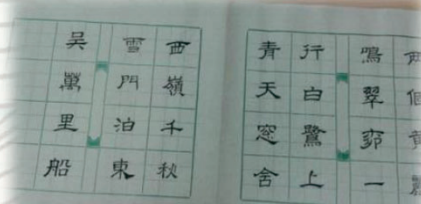 兩個黃鸝
鳴翠柳一
行白鷺上
青天窓含
西嶺千秋
雪門泊東
吴萬里船